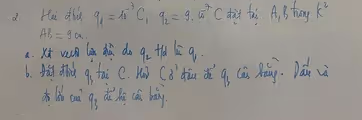 2 Hai đthš q₁ = 10⁻⁷ C, q₂ = 9.10⁻⁷ C đặt tại A, B trong K²
AB = 9 cm.
a. Xđ vectơ lực điện do q₂ td lên q₁
b. Đặt đthš q₃ tại C. Hỏi C ở đâu để q₃ cân bằng. Dấu và
độ lớn của q₃ để hệ cân bằng.